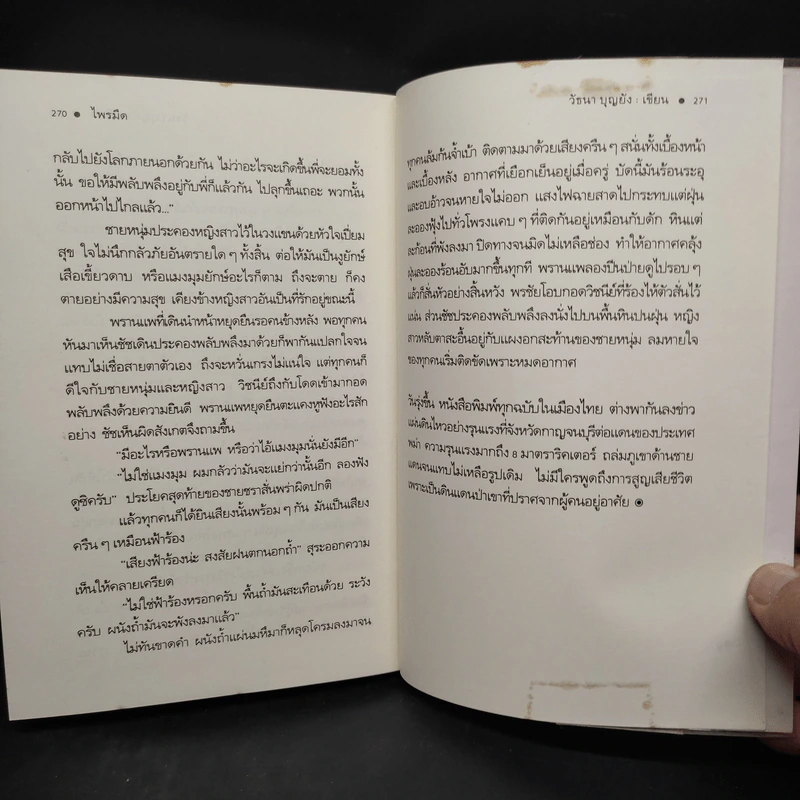 270 ● ไพรมืด
กลับไปยังโลกภายนอกด้วยกัน ไม่ว่าอะไรจะเกิดขึ้นพี่จะยอมทั้ง
นั้น ขอให้มีพลับพลึงอยู่กับพี่ก็แล้วกัน ไปลุกขึ้นเถอะ พวกนั้น
ออกหน้าไปไกลแล้ว..."
ชายหนุ่มประคองหญิงสาวไว้ในวงแขนด้วยหัวใจเปี่ยม
สุข ใจไม่นึกกลัวภัยอันตรายใด ๆ ทั้งสิ้น ต่อให้มันเป็นงูยักษ์
เสือเขี้ยวดาบ หรือแมงมุมยักษ์อะไรก็ตาม ถึงจะตาย ก็คง
ตายอย่างมีความสุข เคียงข้างหญิงสาวอันเป็นที่รักอยู่ขณะนี้
พรานแพที่เดินนำหน้าหยุดยืนรอคนข้างหลัง พอทุกคน
หันมาเห็นชัชเดินประคองพลับพลึงมาด้วยก็พากันแปลกใจจน
แทบไม่เชื่อสายตาตัวเอง ถึงจะหวั่นเกรงไม่แน่ใจ แต่ทุกคนก็
ดีใจกับชายหนุ่มและหญิงสาว วิชนีย์ถึงกับโดดเข้ามากอด
พลับพลึงด้วยความยินดี พรานแพหยุดยืนตะแคงหูฟังอะไรสัก
อย่าง ชัชเห็นผิดสังเกตจึงถามขึ้น
"มีอะไรหรือพรานแพ หรือว่าไอ้แมงมุมนั่นยังมีอีก"
"ไม่ใช่แมงมุม ผมกลัวว่ามันจะแย่กว่านั้นอีก ลองฟัง
ดูซิครับ" ประโยคสุดท้ายของชายชราสั่นพร่าผิดปกติ
แล้วทุกคนก็ได้ยินเสียงนั้นพร้อม ๆ กัน มันเป็นเสียง
ครืน ๆ เหมือนฟ้าร้อง
"เสียงฟ้าร้องน่ะ สงสัยฝนตกนอกถ้ำ" สุระออกความ
เห็นให้คลายเครียด
"ไม่ใช่ฟ้าร้องหรอกครับ พื้นถ้ำมันสะเทือนด้วย ระวัง
ครับ ผนังถ้ำมันจะพังลงมาแล้ว"
ไม่ทันขาดคำ ผนังถ้ำแผ่นมหึมาก็หลุดโครมลงมาจน
วัธนา บุญยัง : เขียน ● 271
ทุกคนล้มก้นจ้ำเบ้า ติดตามมาด้วยเสียงครืน ๆ สนั่นทั้งเบื้องหน้า
และเบื้องหลัง อากาศที่เยือกเย็นอยู่เมื่อครู่ บัดนี้มันร้อนระอุ
และอบอ้าวจนหายใจไม่ออก แสงไฟฉายสาดไปกระทบแต่ฝุ่น
ละอองฟุ้งไปทั่วโพรงแคบ ๆ ที่ติดกันอยู่เหมือนกับดัก หินแต่
ละก้อนที่พังลงมา ปิดทางจนมิดไม่เหลือช่อง ทำให้อากาศคลุ้ง
ฝุ่นละอองร้อนอับมากขึ้นทุกที พรานแพลองปีนป่ายดูไปรอบ ๆ
แล้วก็สั่นหัวอย่างสิ้นหวัง พรชัยโอบกอดวิชนีย์ที่ร้องไห้ตัวสั่นไว้
แน่น ส่วนชัชประคองพลับพลึงลงนั่งไปบนพื้นหินปนฝุ่น หญิง
สาวหลับตาสะอื้นอยู่กับแผงอกสะท้านของชายหนุ่ม ลมหายใจ
ของทุกคนเริ่มติดขัดเพราะหมดอากาศ
วันรุ่งขึ้น หนังสือพิมพ์ทุกฉบับในเมืองไทย ต่างพากันลงข่าว
แผ่นดินไหวอย่างรุนแรงที่จังหวัดกาญจนบุรีต่อแดนของประเทศ
พม่า ความรุนแรงมากถึง 8 มาตราริคเตอร์ ถล่มภูเขาด้านชาย
แดนจนแทบไม่เหลือรูปเดิม ไม่มีใครพูดถึงการสูญเสียชีวิต
เพราะเป็นดินแดนป่าเขาที่ปราศจากผู้คนอยู่อาศัย ◉